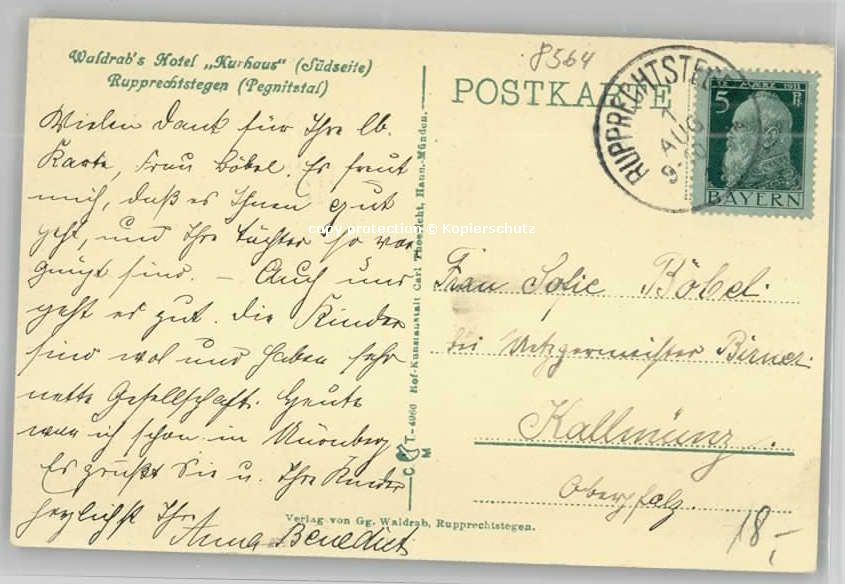 Waldrab's Hotel „Kurhaus" (Südseite)
Rupprechtstegen (Pegnitztal)
Vielen Dank für Ihre lb.
Karte, Frau Böbel. Es freut
mich, daß es Ihnen gut
geht, und Ihre Töchter so ver
gnügt sind. – Auch uns
geht es gut. Die Kinder
sind wol und haben sehr
nette Gesellschaft. Heute
war ich schon in Nürnberg
Es grüßt Sie u. Ihre Kinder
herzlichst Ihre
Anna Benedict
Verlag von Gg. Waldrab, Rupprechtstegen.
Hof-Kunstanstalt Carl Thoericht, Hann.-Münden.
C T-4960
M
copy protection © Kopierschutz
8564
POSTKARTE
RUPPRECHTSTEGEN
AUG
12. MÄRZ 1911
5 Pf.
BAYERN
Frau Sofie Böbel.
bei Metzgermeister Birner.
Kallmünz.
Oberpfalz.
18,-